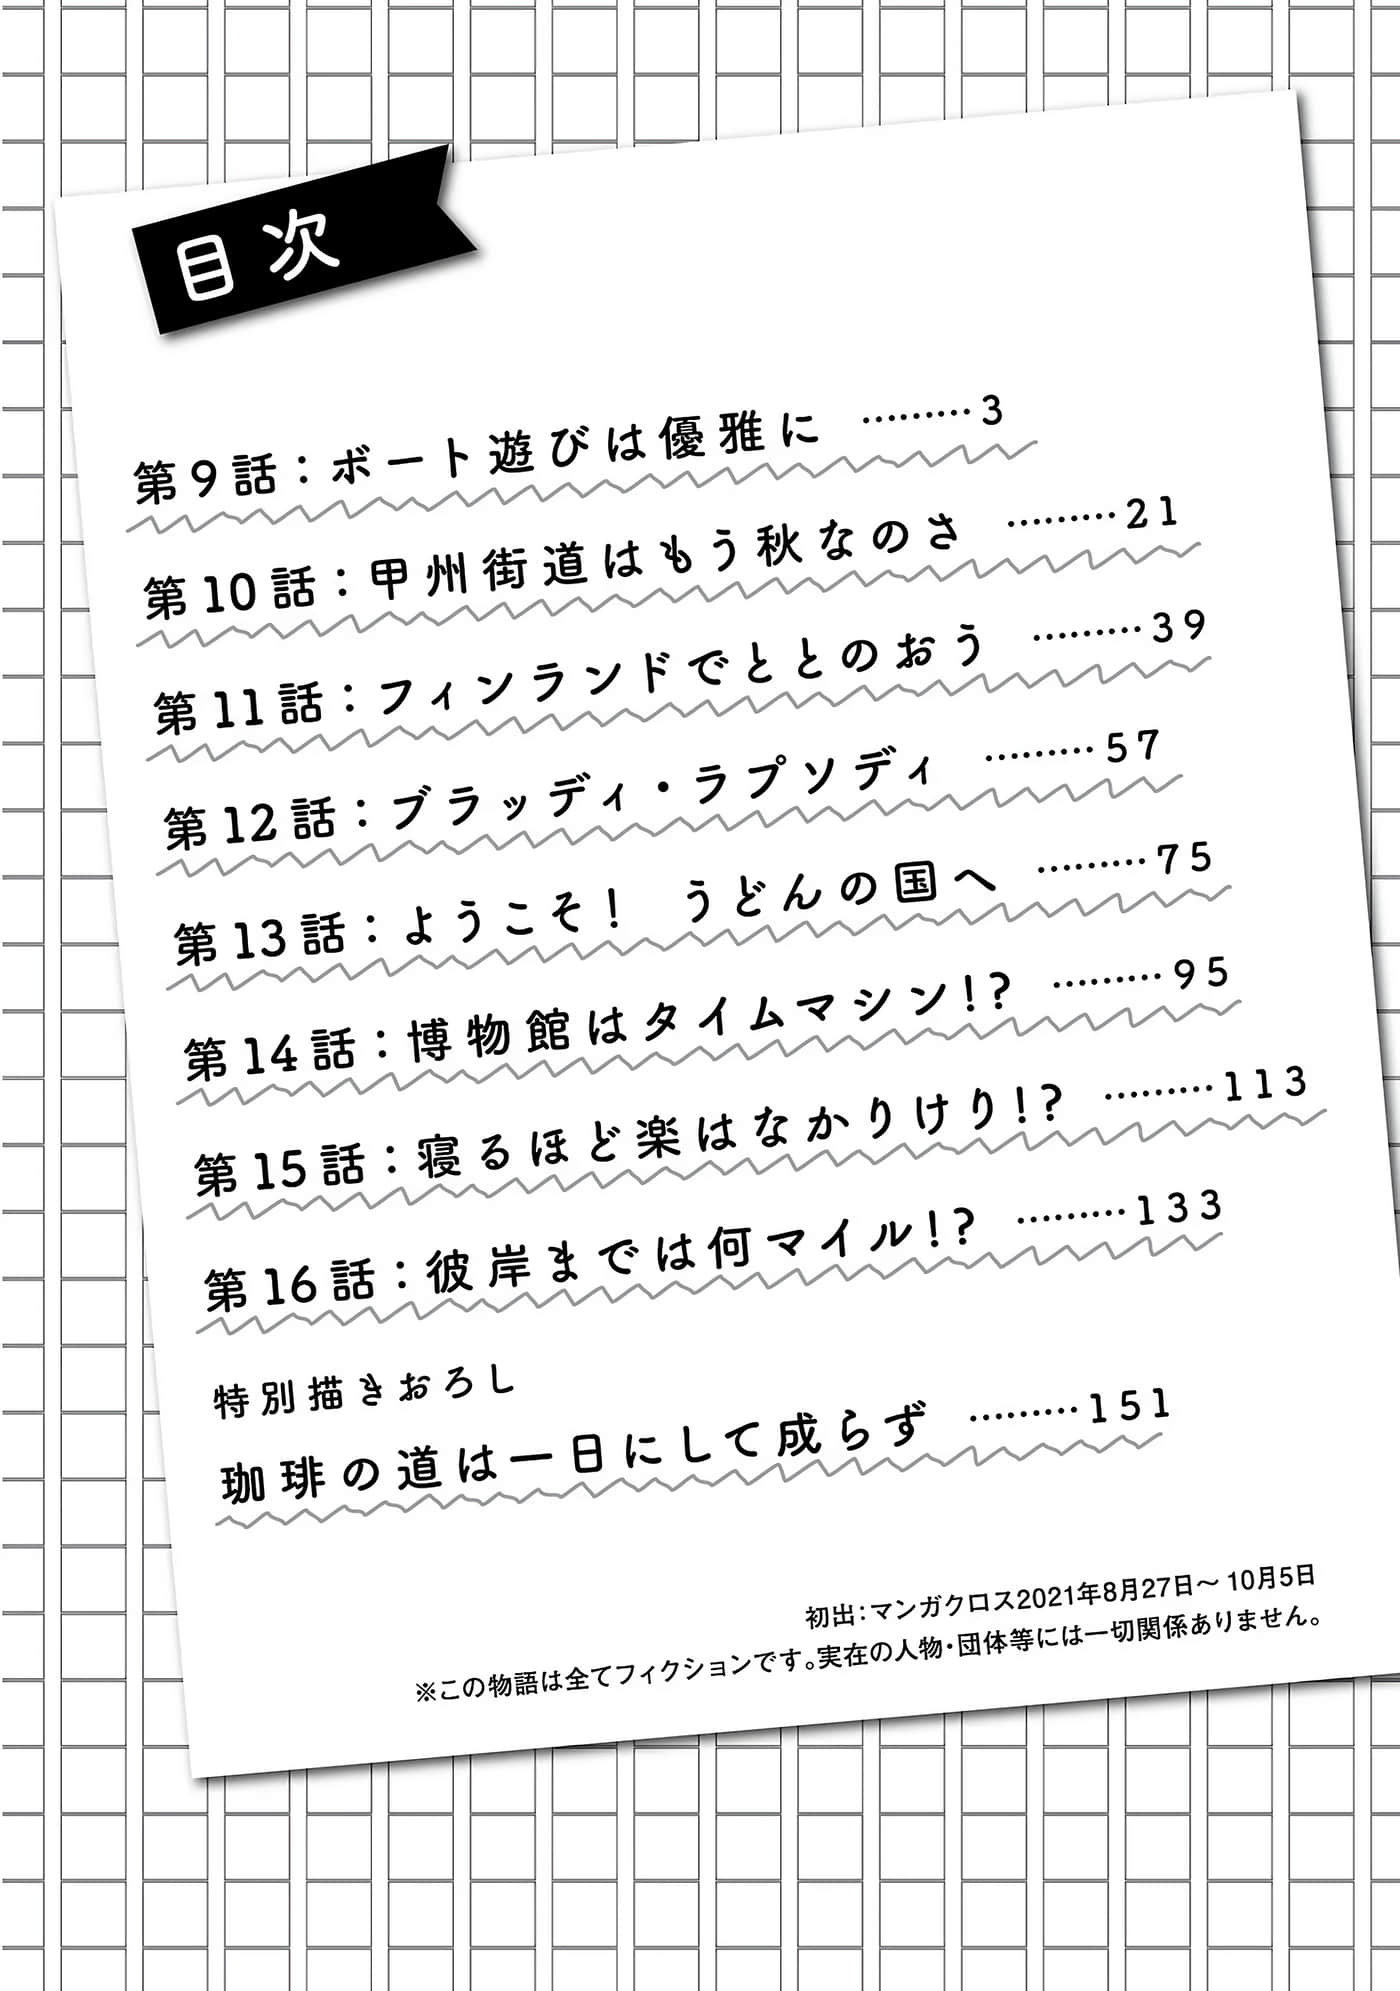 目次
第9話：ボート遊びは優雅に ………3
第10話：甲州街道はもう秋なのさ ………21
第11話：フィンランドでととのおう ………39
第12話：ブラッディ・ラプソディ ………57
第13話：ようこそ！　うどんの国へ ………75
第14話：博物館はタイムマシン!? ………95
第15話：寝るほど楽はなかりけり!? ………113
第16話：彼岸までは何マイル!? ………133
特別描きおろし
珈琲の道は一日にして成らず ………151
初出：マンガクロス2021年8月27日〜10月5日
※この物語は全てフィクションです。実在の人物・団体等には一切関係ありません。